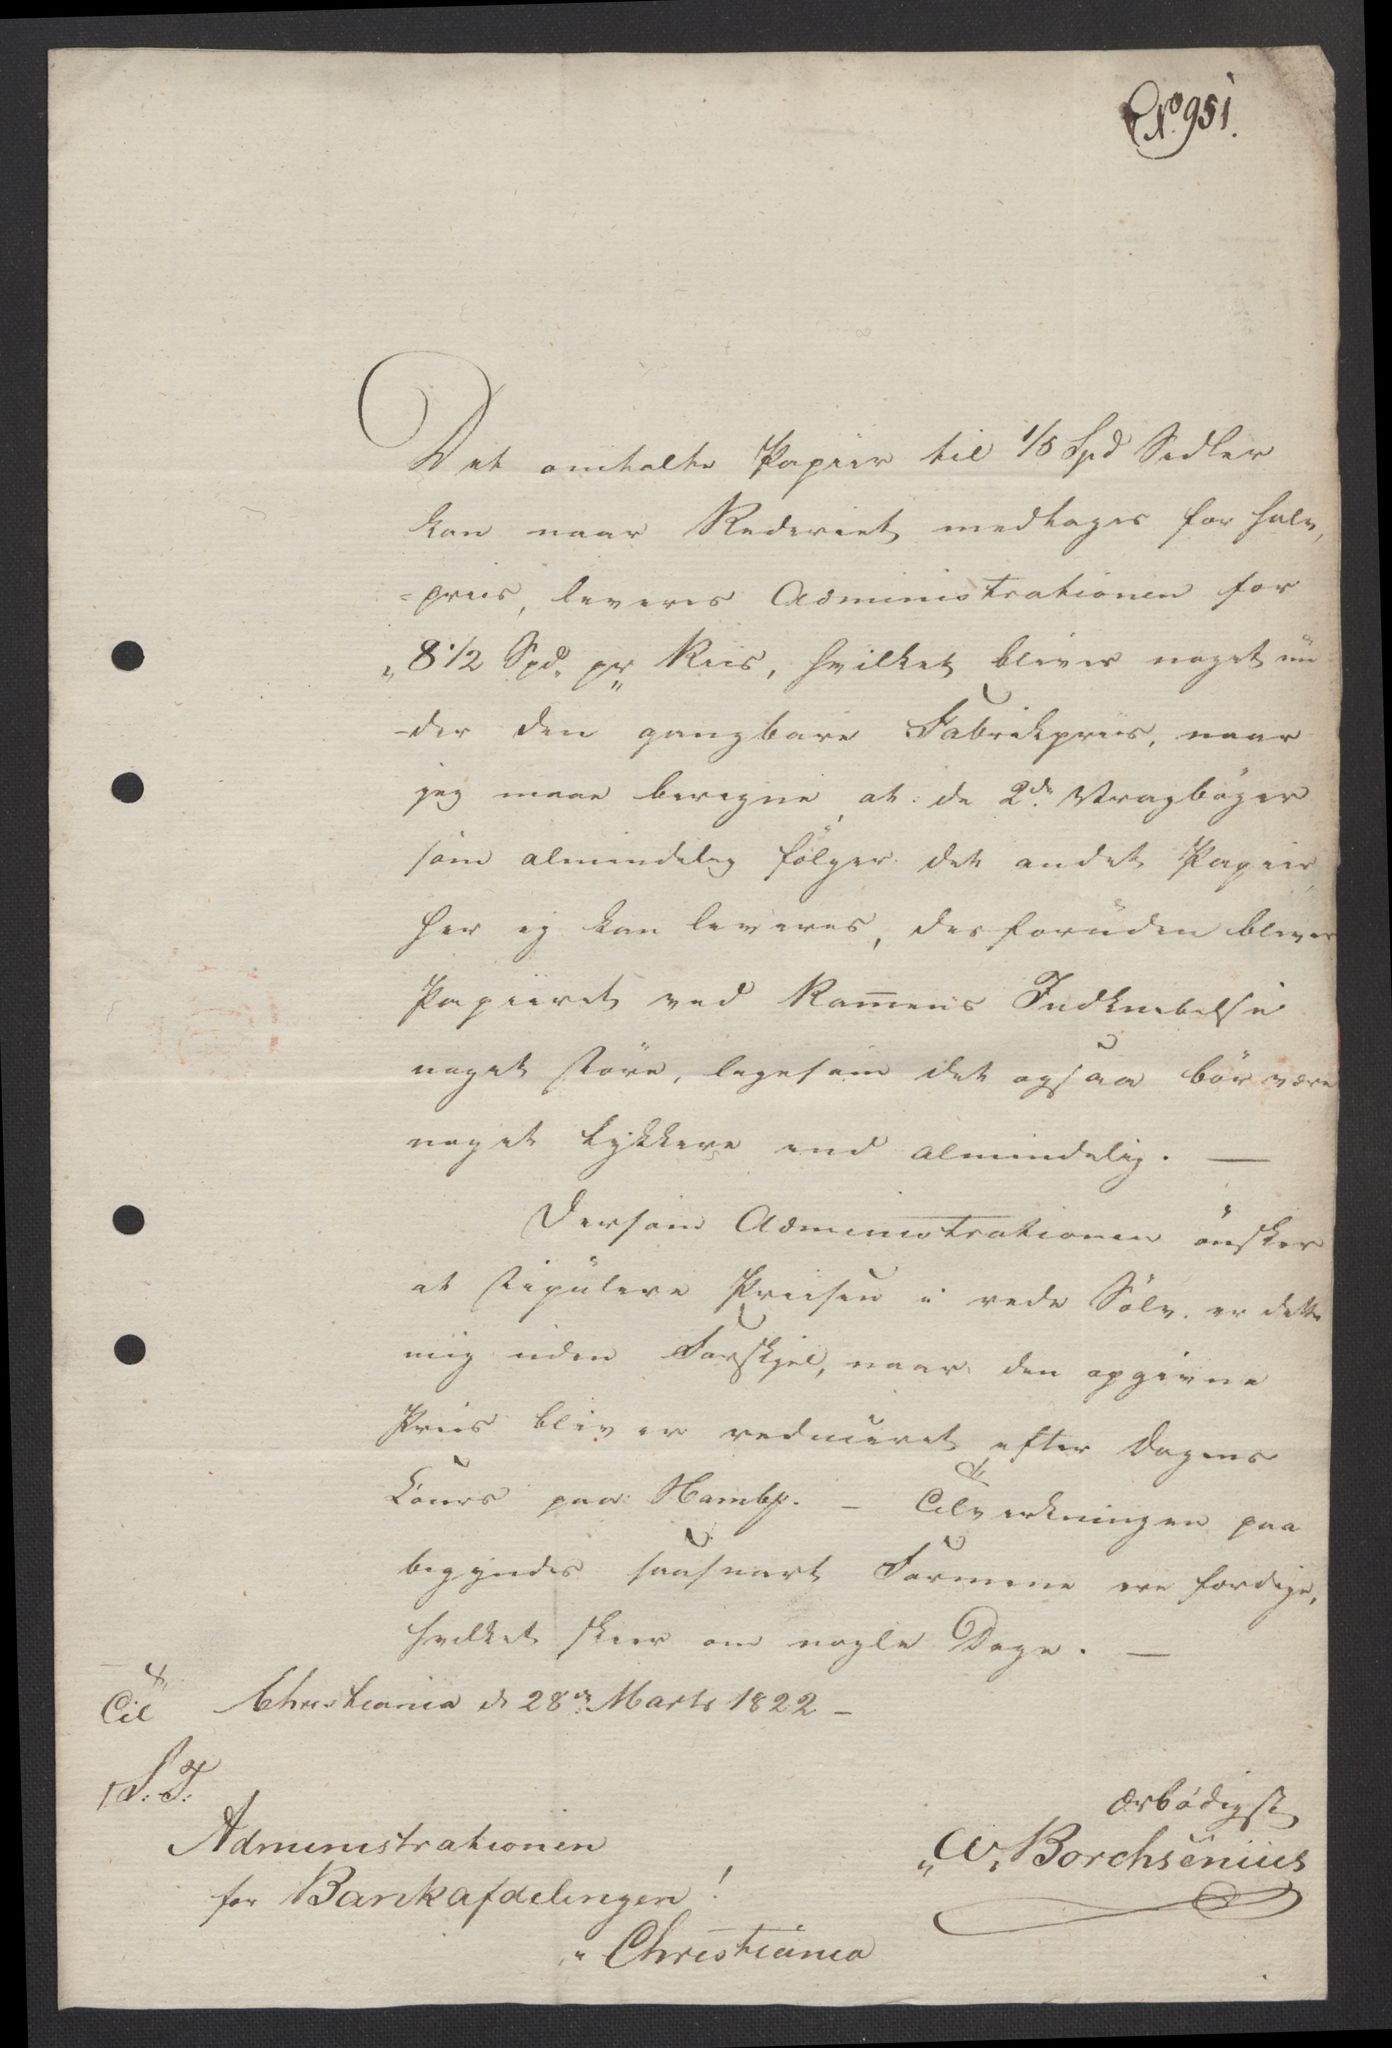 No 951.
Det omtalte Papiir til 1/5 Spd Sedler
kan naar Rederiet medtages for halv,
=priis, leveres Administrationen for
„8 1/2 Spd. pr Riis, hvilket bliver noget un
-der den gangbare Fabrikpriis, naar
jeg maae beregne, at de 2de Vragböger
som almindelig fölger det andet Papiir,
her ej kan leveres, desforuden bliver
Papiiret ved Ram̅ens Indknebelse
noget störe, ligesom det ogsaa bör være
noget tykkere end almindelig. —
Dersom Administrationen önsker
at stipulere Priisen i rede Sölv. er dette
mig uden Forskjel, naar den opgivne
Priis bliver reduceret efter Dagens
Cours paa Hambg. — Tilvirkningen paa
begyndes saasnart Formene ere færdige,
hvilket skeer om nogle Dage. —
Christiania d 28de Marts 1822 —
Til
S. T.
ærbödigst
Administrationen
W. Borchsenius
for Bankafdelingen!
Christiania